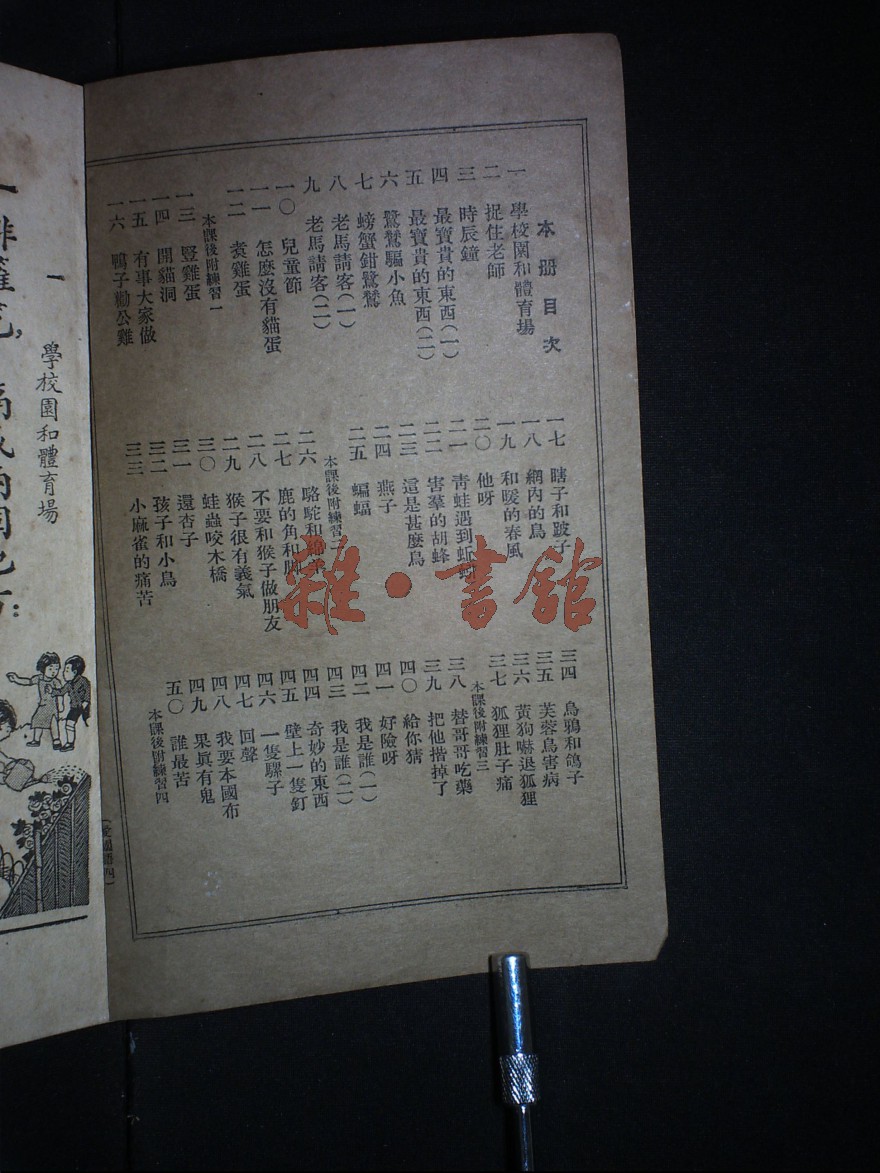 本册目次
一 學校園和體育場
二 捉住老師
三 時辰鐘
四 最寶貴的東西(一)
五 最寶貴的東西(二)
六 鷺鷥騙小魚
七 螃蟹鉗鷺鷥
八 老馬請客(一)
九 老馬請客(二)
一〇 兒童節
一一 怎麼沒有貓蛋
一二 煑雞蛋
本課後附練習一
一三 豎雞蛋
一四 開貓洞
一五 有事大家做
一六 鴨子勸公雞
一七 瞎子和跛子
一八 網內的鳥
一九 和暖的春風
二〇 他呀
二一 青蛙遇到蚯蚓
二二 害羣的胡蜂
二三 這是甚麼鳥
二四 燕子
二五 蝙蝠
本課後附練習二
二六 駱駝和綿羊
二七 鹿的角和脚
二八 不要和猴子做朋友
二九 猴子很有義氣
三〇 蛀蟲咬木橋
三一 還杏子
三二 孩子和小鳥
三三 小麻雀的痛苦
三四 烏鴉和鴿子
三五 芙蓉鳥害病
三六 黃狗嚇退狐狸
三七 狐狸肚子痛
本課後附練習三
三八 替哥哥吃藥
三九 把他揩掉了
四〇 給你猜
四一 好險呀
四二 我是誰(一)
四三 我是誰(二)
四四 奇妙的東西
四五 壁上一隻釘
四六 一隻騾子
四七 回聲
四八 我要本國布
四九 果眞有鬼
五〇 誰最苦
本課後附練習四
一 學校園和體育場
雜·書館